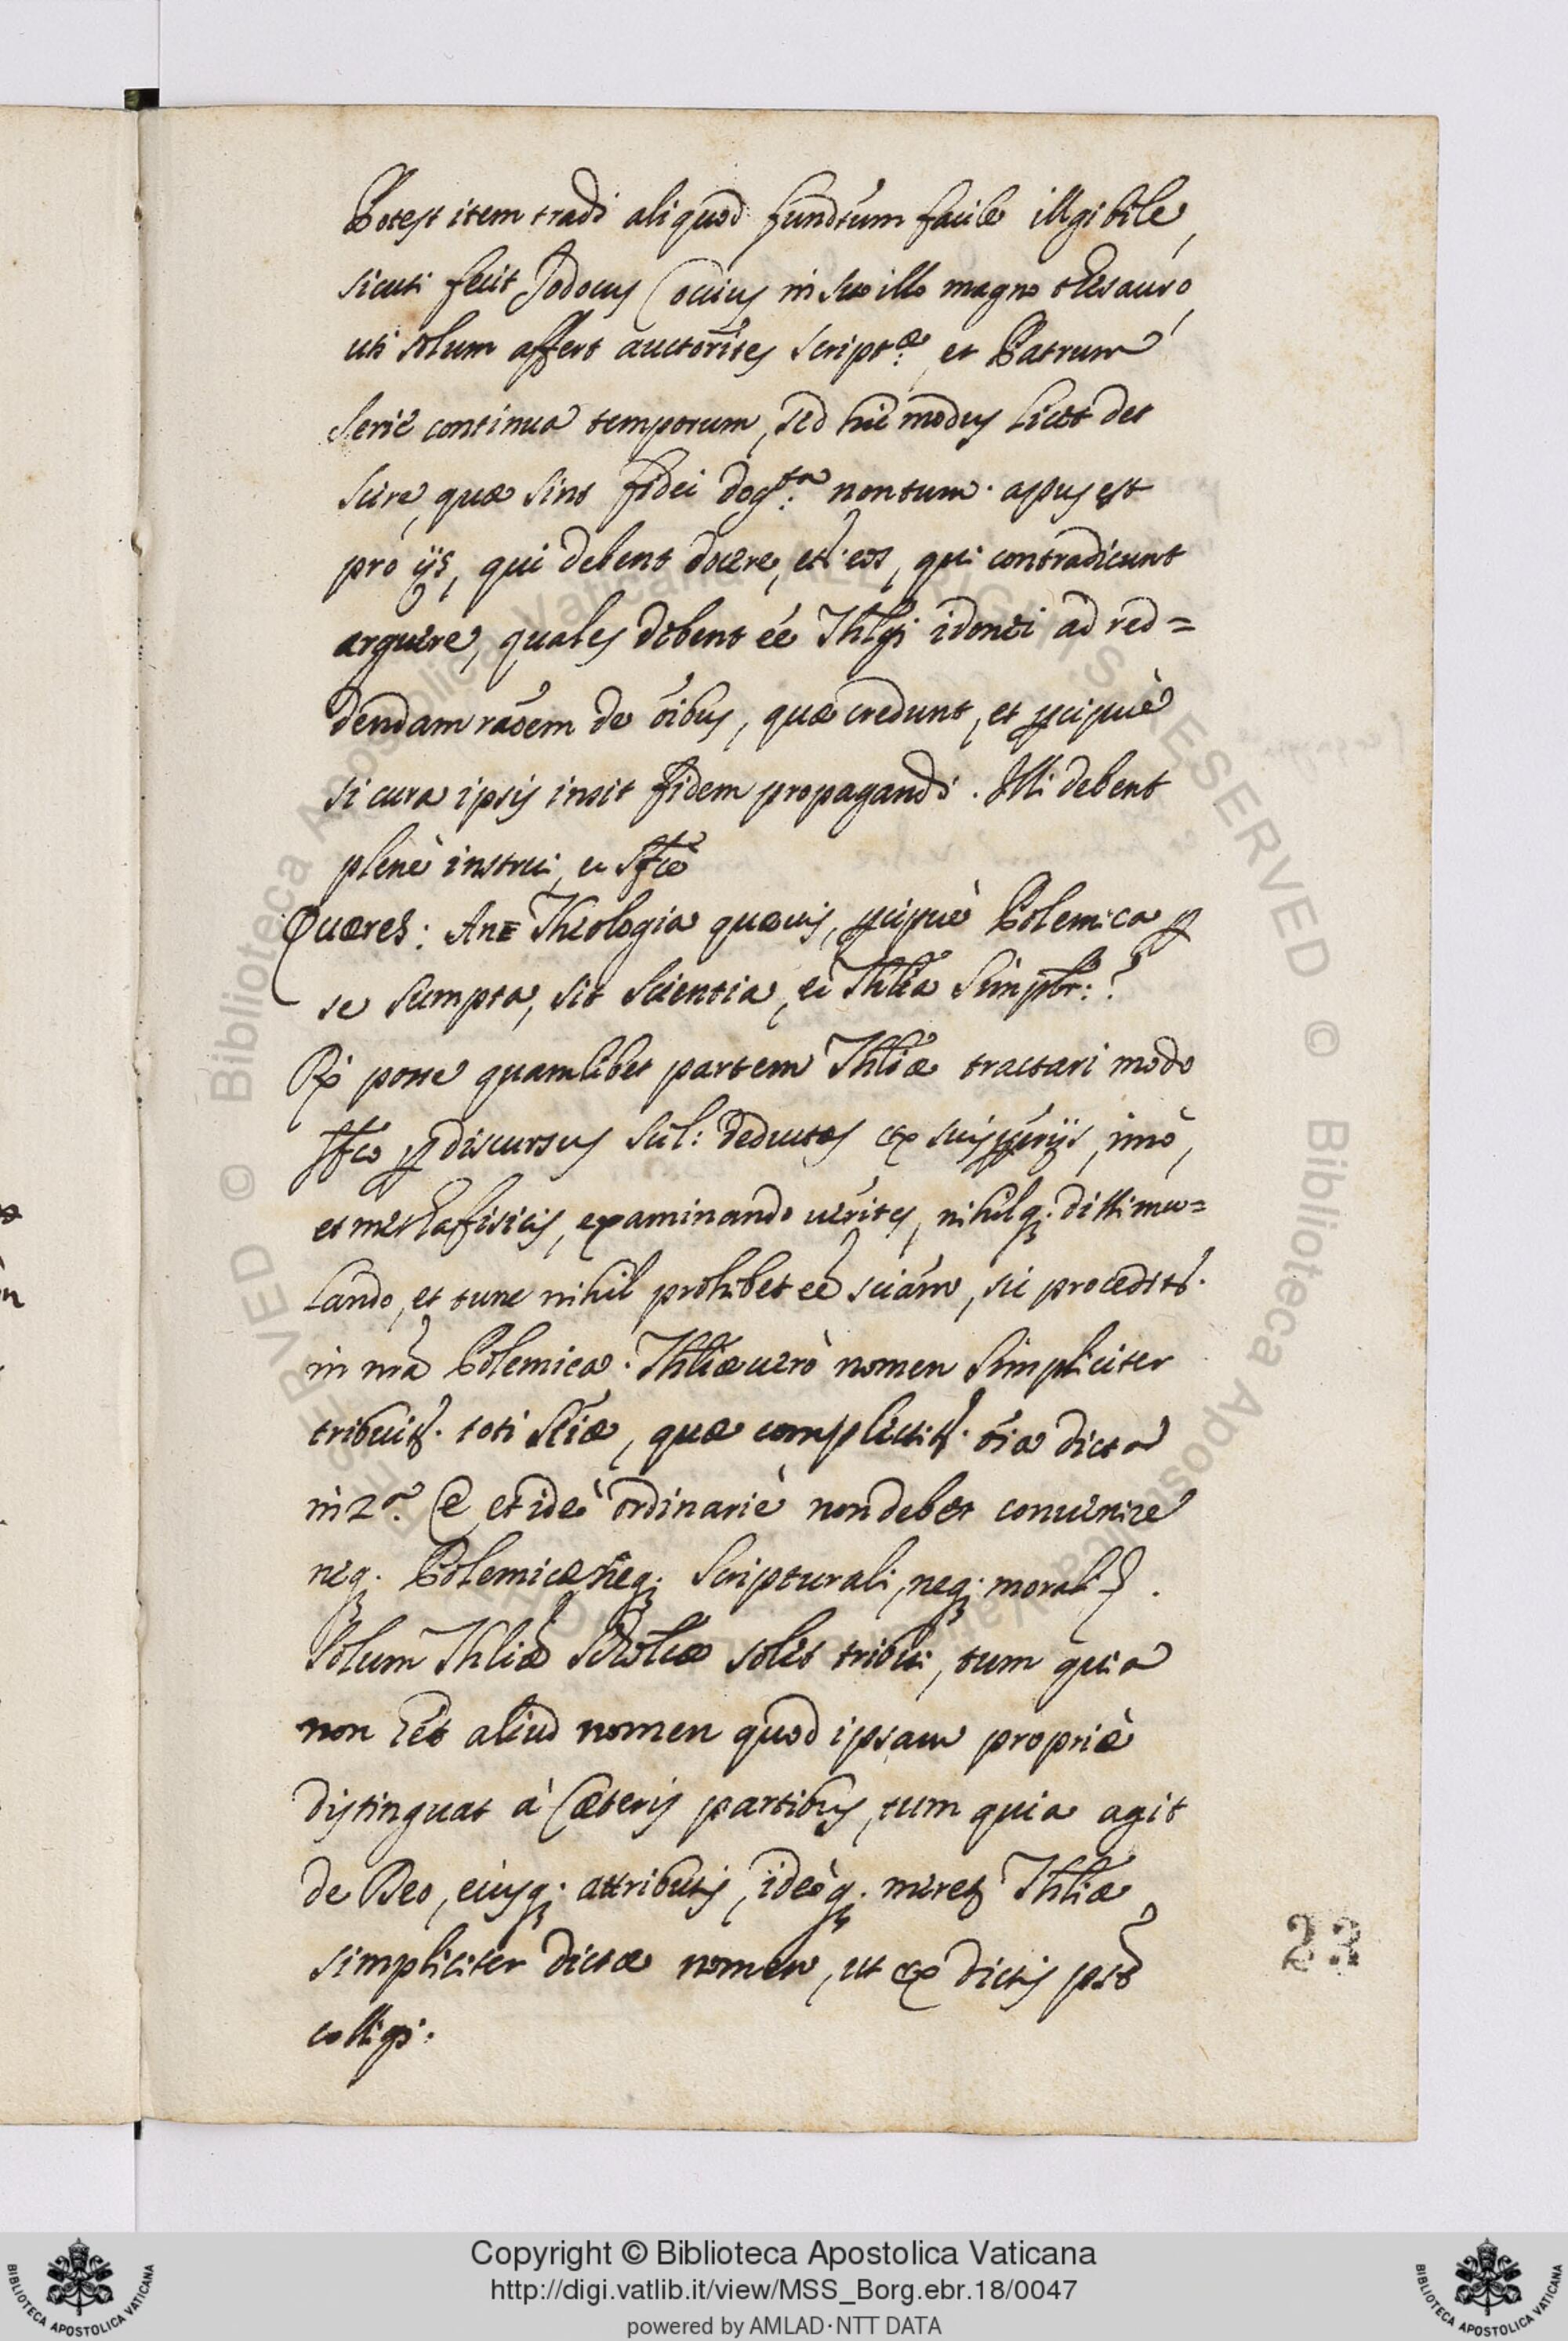 Potest item tradi aliquod fundtum facile illgibile,
sicuti fecit Jodocus Coccius in suo illo magno thesauro,
uti solum affert auctorites script.æ et Patrum
serie continua temporum, sed hic modus licet det
scire, quæ sint fidei dog.ta non tum aptus est
pro ijs, qui debent docere, et eos, qui contradicunt
arguere, quales debent éé Thlgi idonei ad red=
dendam raõem de oibus, quæ credunt, et pcipuè
si cura ipsis insit fidem propagandi. Illi debent
plenè instrui, et sfcè
Quæres: An Theologia quævis, pcipuè Polemica p
se sumpta, sit scientia, et Thlia simplr:?
Rp posse quamlibet partem Thliæ tractari modo
sfco p discursus scil: deductos ex suis prijs, imò,
et methafisicis, examinando uerites, nihilq; dissimu=
lando, et tunc nihil prohibet eé sciam, sic procedit.
in mã Polemica. Thliæ uerò nomen simpliciter
tribuit. toti stiæ, quæ complectit. oia dicta
in 2.a C et ideò ordinariè non debet conuenire
neq; Polemicæ neq; Scripturali, neq; morali.
Solum Thliæ Scholcæ solet tribui, tum quia
non hét aliud nomen quod ipsam propriè
distinguat à Cæteris partibus, tum quia agit
de Deo, eiusq; attributis, ideòq; meret Thliæ
simpliciter dictæ nomen, ut ex dictis pot
colligi.
23
Copyright © Biblioteca Apostolica Vaticana
http://digi.vatlib.it/view/MSS_Borg.ebr.18/0047
powered by AMLAD·NTT DATA
BIBLIOTECA APOSTOLICA VATICANA
BIBLIOTECA APOSTOLICA VATICANA